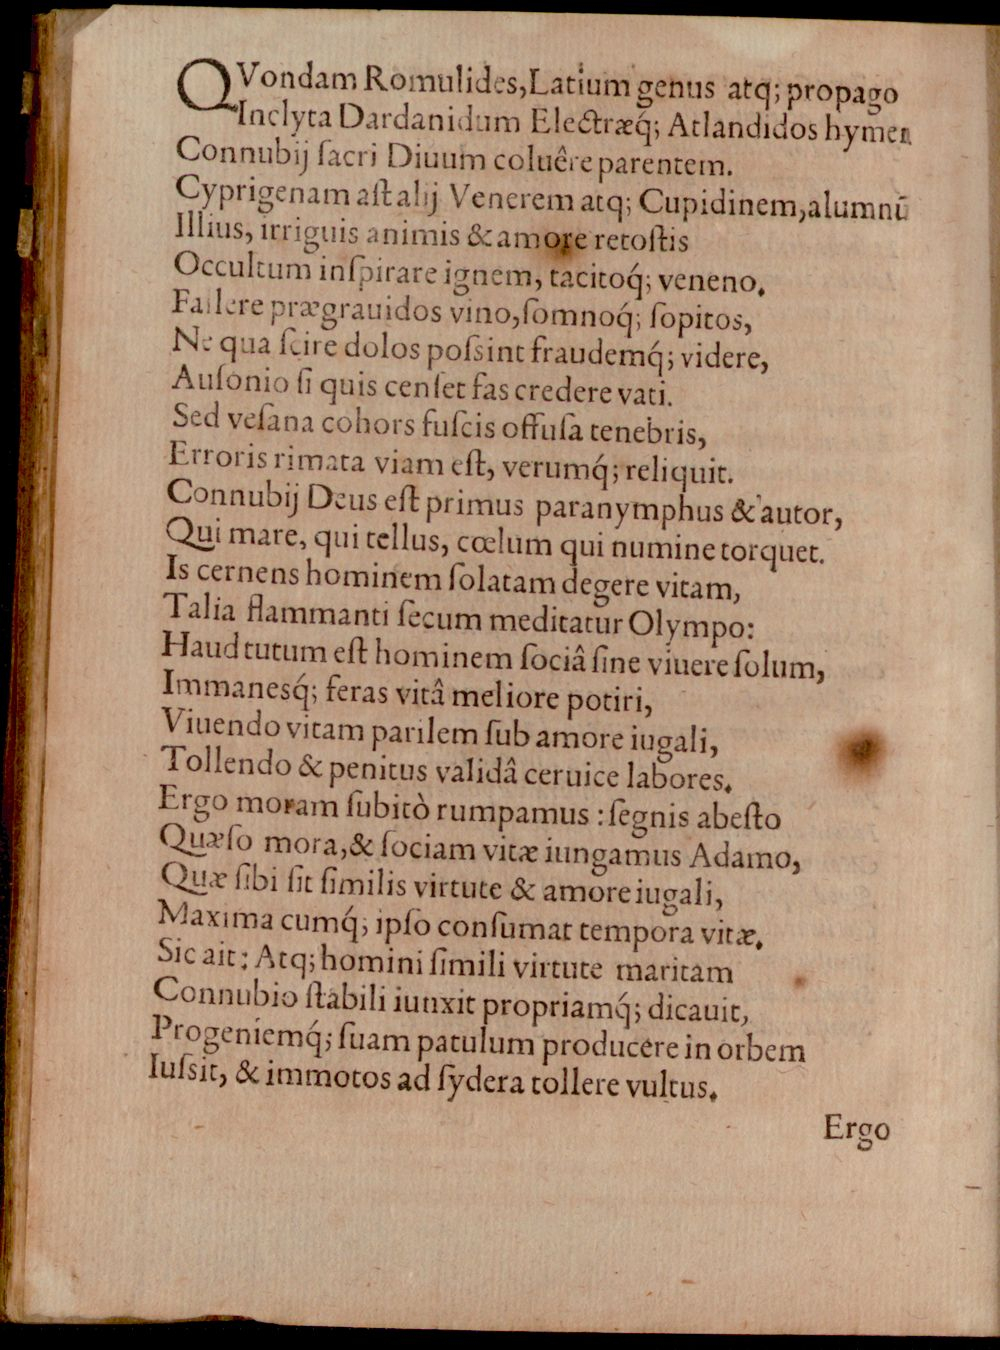 QVondam Romulides, Latium genus atq; propago
Inclyta Dardanidum Electræq́; Atlandidos hymen
Connubij ſacri Diuum coluêre parentem.
Cyprigenam aſt alij Venerem atq; Cupidinem, alumnū
Illius, irriguis animis & amore retoſtis
Occultum inſpirare ignem, tacitoq́; veneno.
Fallere prægrauidos vino, ſomnoq́; ſopitos,
Ne qua ſcire dolos poſsint fraudemq́; videre,
Auſonio ſi quis cenſet fas credere vati.
Sed veſana cohors fuſcis offuſa tenebris,
Erroris rimata viam eſt, verumq́; reliquit.
Connubij Deus eſt primus paranymphus & autor,
Qui mare, qui tellus, cœlum qui numine torquet.
Is cernens hominem ſolatam degere vitam,
Talia flammanti ſecum meditatur Olympo:
Haud tutum eſt hominem ſociâ ſine viuere ſolum,
Immanesq́; feras vitâ meliore potiri,
Viuendo vitam parilem ſub amore iugali,
Tollendo & penitus validâ ceruice labores.
Ergo moram ſubitò rumpamus : ſegnis abeſto
Quæſo mora, & ſociam vitæ iungamus Adamo,
Quæ ſibi ſit ſimilis virtute & amore iugali,
Maxima cumq́; ipſo conſumat tempora vitæ.
Sic ait: Atq; homini ſimili virtute maritam
Connubio ſtabili iunxit propriamq́; dicauit,
Progeniemq́; ſuam patulum producere in orbem
Iuſsit, & immotos ad ſydera tollere vultus.
Ergo